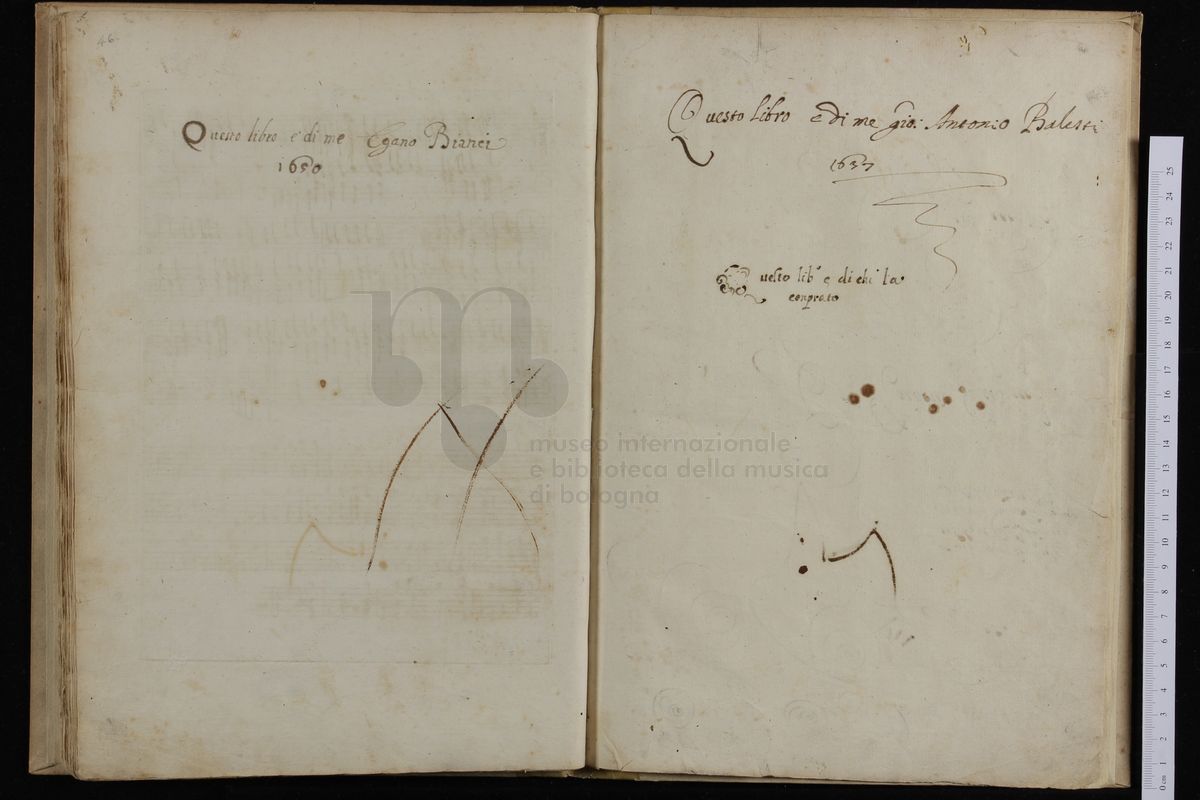 46
Questo libro e di me Egano Bianci
1650
Questo libro e di me Gio: Antonio Balesti
1657
Questo lib.º e di chi la
conprato
museo internazionale
e biblioteca della musica
di bologna
25
24
23
22
21
20
19
18
17
16
15
14
13
12
11
10
9
8
7
6
5
4
3
2
1
0 cm